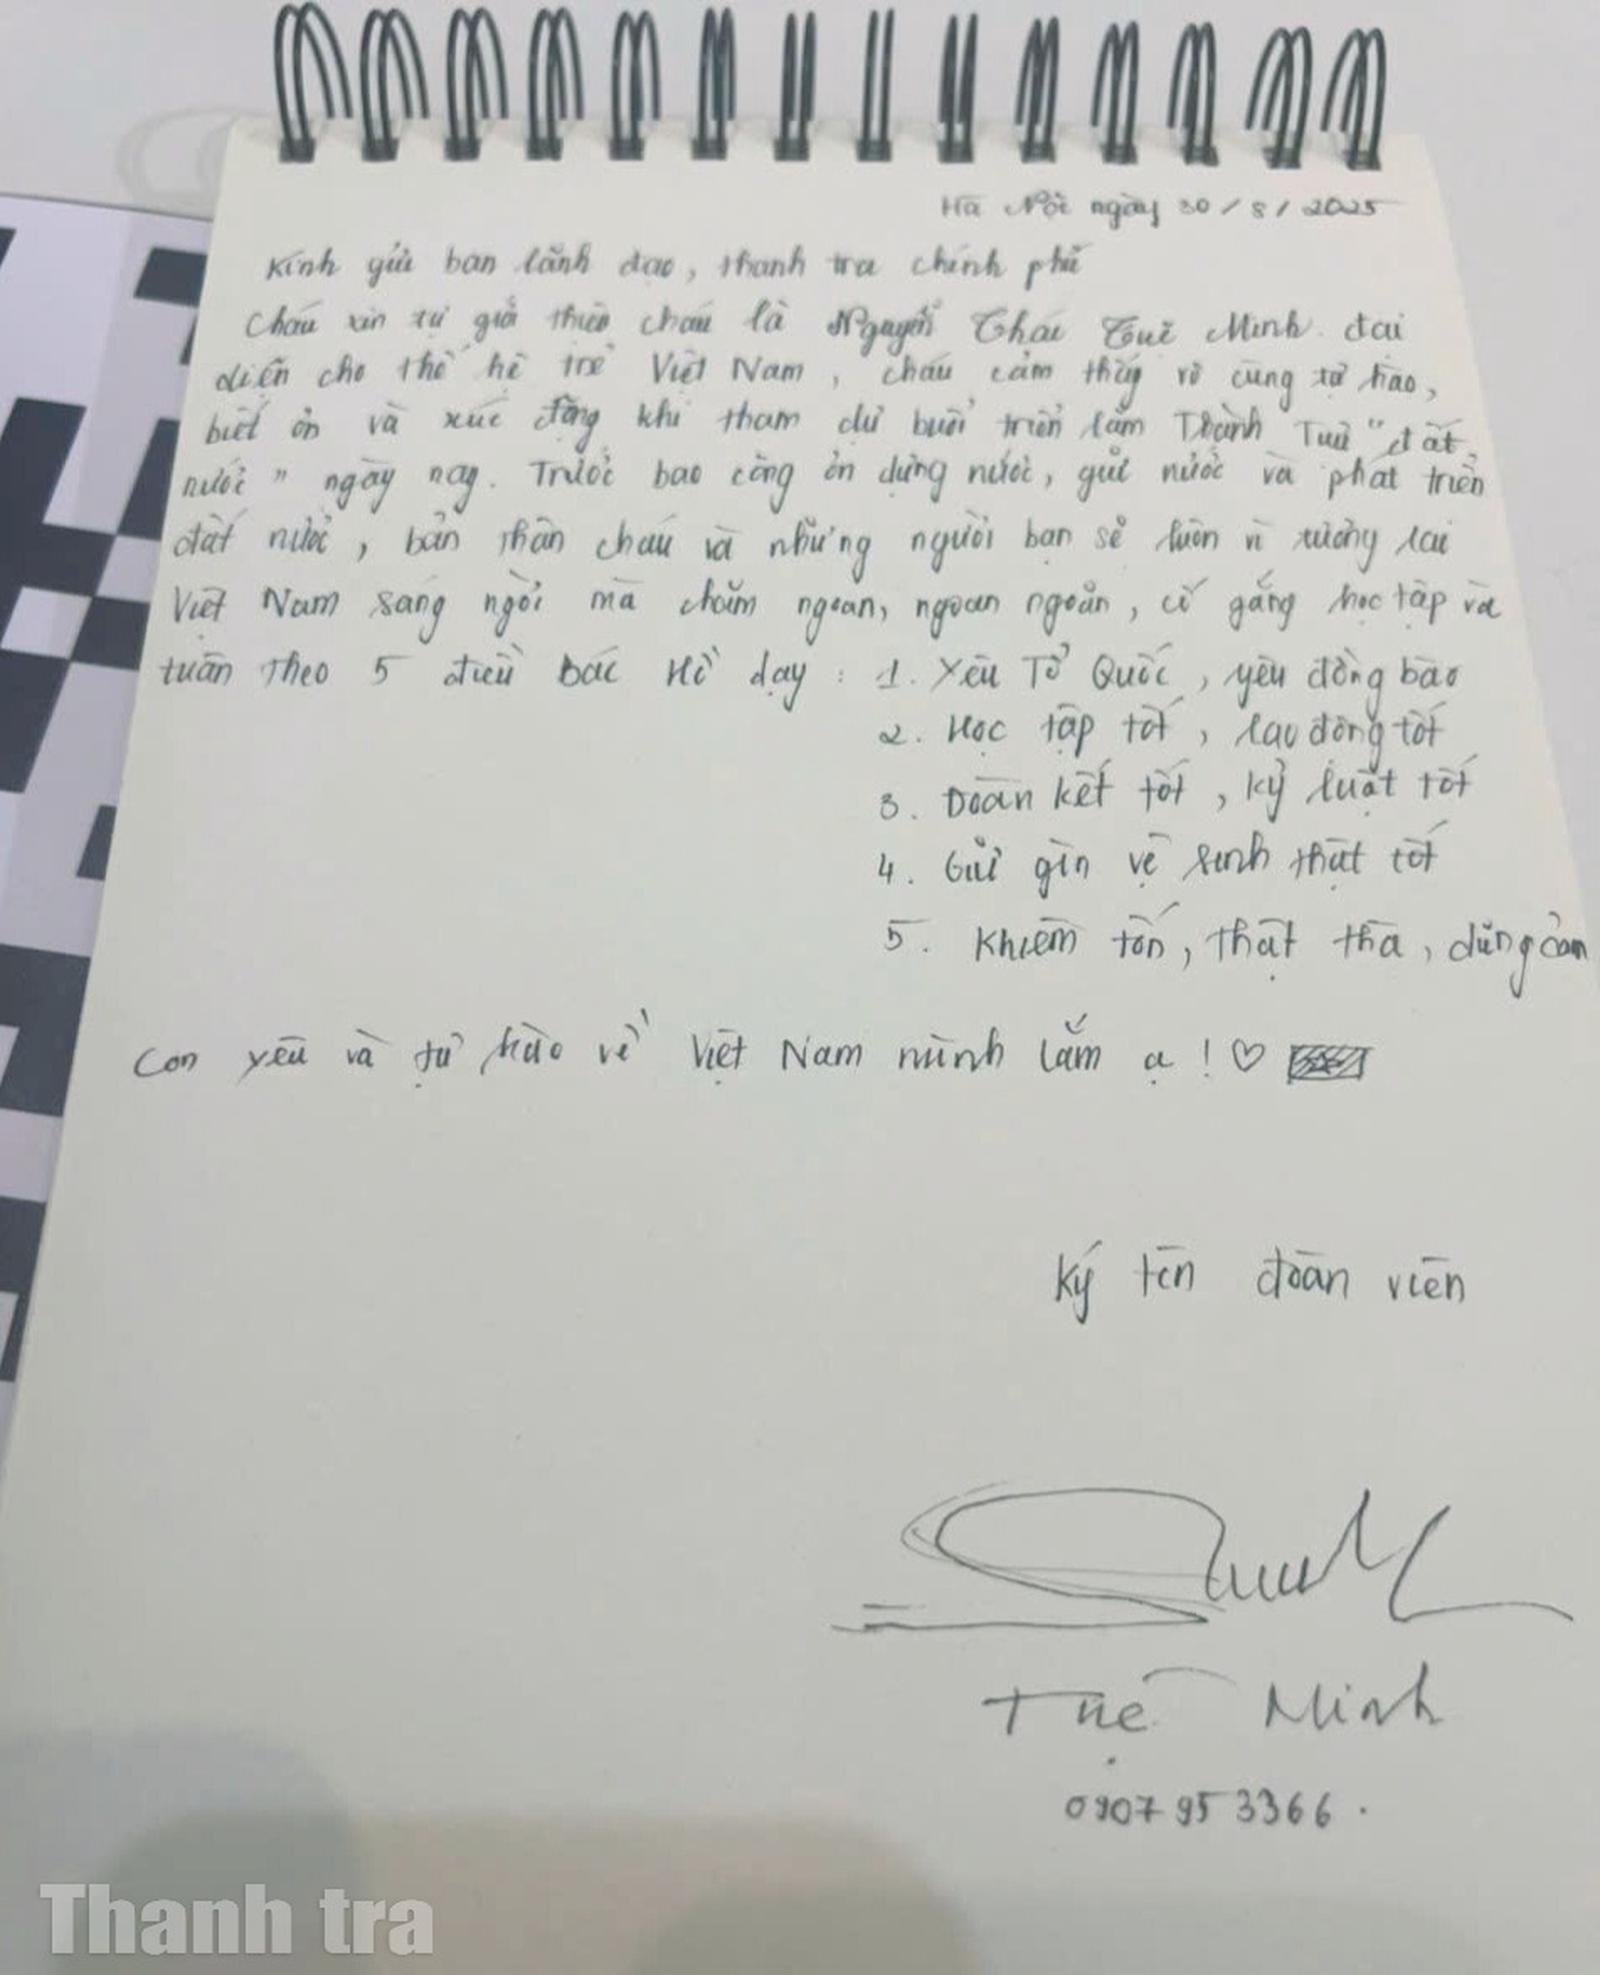 Hà Nội ngày 30/8/2025
Kính gửi ban lãnh đạo, thanh tra chính phủ
Cháu xin tự giới thiệu cháu là Nguyễn Thái Tuệ Minh. đại
diện cho thế hệ trẻ Việt Nam, cháu cảm thấy vô cùng tự hào,
biết ơn và xúc động khi tham dự buổi triển lãm Thành Tựu "đất
nước" ngày nay. Trước bao công ơn dựng nước, giữ nước và phát triển
đất nước, bản thân cháu và những người bạn sẽ luôn vì tương lai
Việt Nam sáng ngời mà chăm ngoan, ngoan ngoãn, cố gắng học tập và
tuân theo 5 điều Bác Hồ dạy : 1. Yêu Tổ Quốc, yêu đồng bào
2. Học tập tốt, lao động tốt
3. Đoàn kết tốt, kỷ luật tốt
4. Giữ gìn vệ sinh thật tốt
5. Khiêm tốn, thật thà, dũng cảm
Con yêu và tự hào về Việt Nam mình lắm ạ ! ♡
Ký tên đoàn viên
Tuệ Minh
0907953366.
Thanh tra